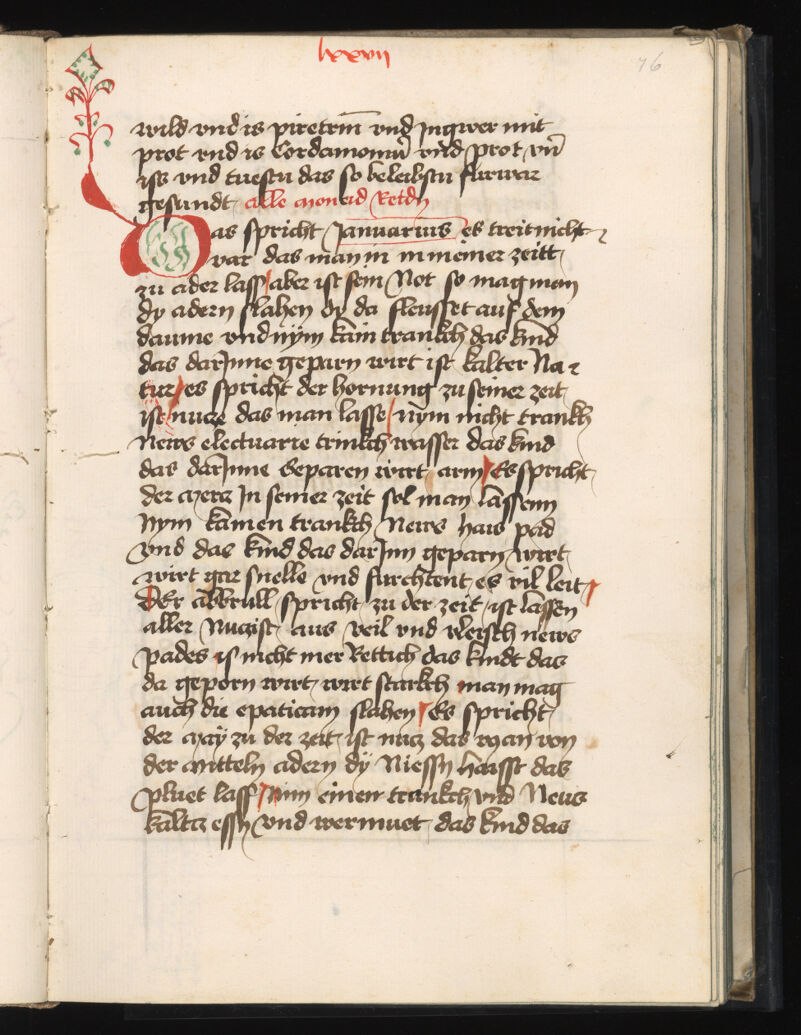 lxxvii
76
wild vnd is piretrum̄ vnd Ingwer mit
prot vnd is Cordamomū vnd prot vn̄
iss vnd tuestu das so beleibstu furwar
gesundt alle moneid Retdn
as spricht Januarius es treit nicht
var das man in in meiner zeitt
zu ader lass aber ist sein Not so mag man
dy adern slahen dy da fleusset auf dem
daume vnd nÿm kain trankch das kind
das darJnne geparn wirt ist kalter Na
tur es spricht der hornung zu seiner zeit
ist nucz das man lasse nym nicht trankh
news electuarie trinkch wasser das kind
das darJnne Geparen wirt arm Es spricht
der mercz Jn seiner zeit sol man lassenn
Nym kainen trankch News hais pad
vnd das kind das darJnn geparn wirt
wirt gar snelle vnd furchtent es vil leit
Der abbrull spricht zu der zeit ist lassen
aller Nuczist aus veil vnd vleisch news
pades is nicht mer Rettich das kindt das
da geporn wirt wirt starkch man mag
auch die epaticam slahen Es spricht
der may zu der zeit ist nucz das man von
der mitteln adern dÿ Niessn haisst das
pluet lass nim einen trankch vnd News
kaltcz essn vnd wermuet das kind das